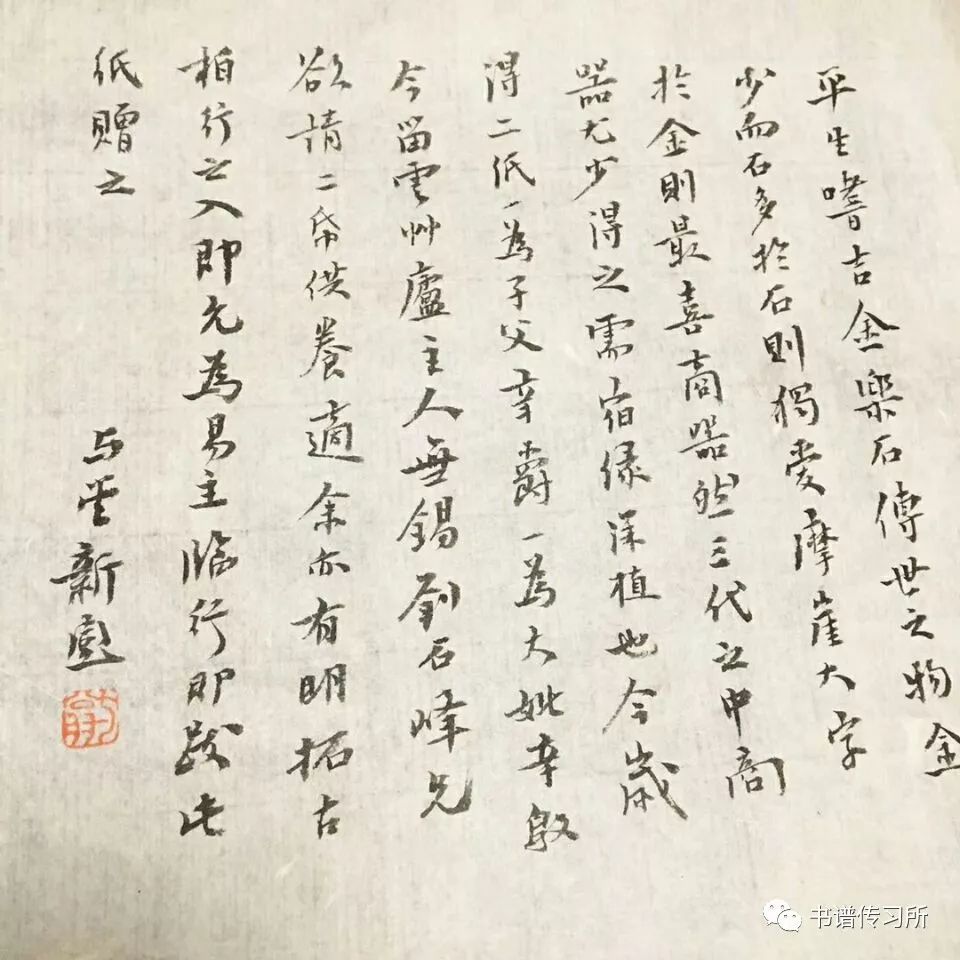 平生嗜吉金樂石傳世之物金
少而石多於石則獨愛摩崖大字
於金則最喜商器然三代之中商
器尤少得之需宿緣深植也今歲
得二紙一為子父辛爵一為大妣辛𣪘
今留雲艸廬主人無錫劉石峰兄
欲請二帋供養適余亦有明拓古
柏行之入即允為易主臨行即跋此
紙贈之
与雲新
书谱传习所